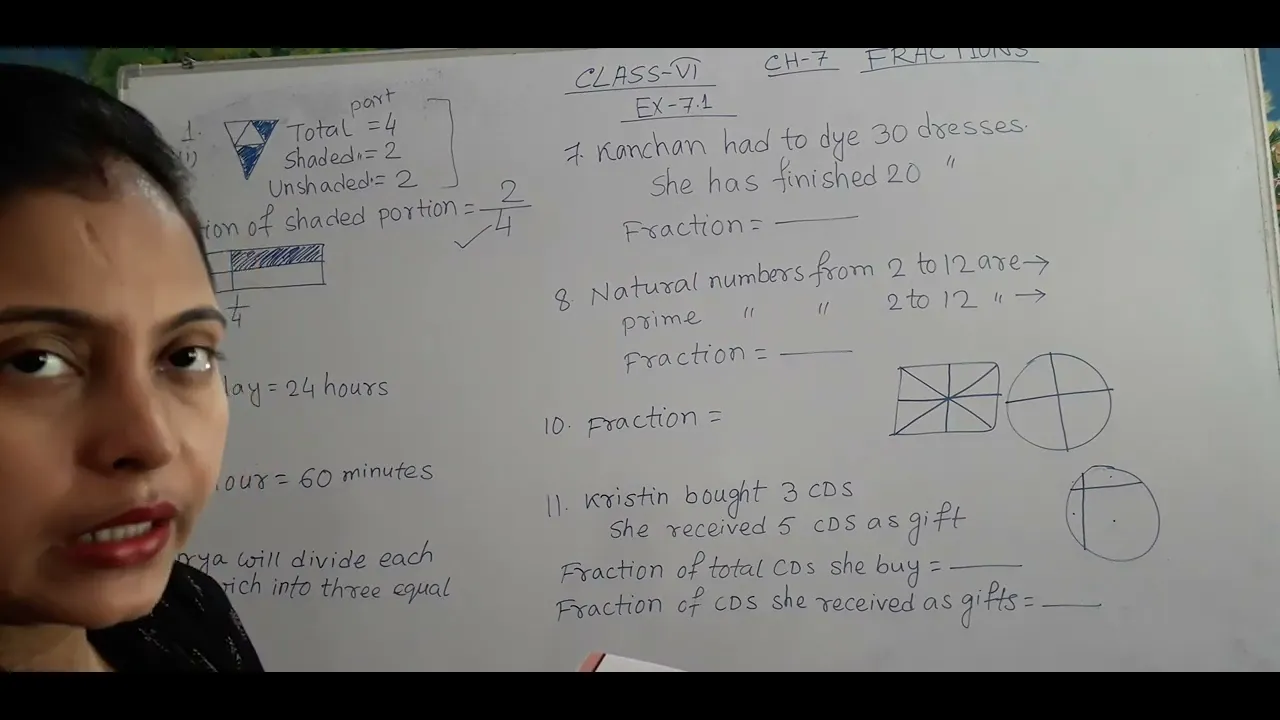 CLASS-VI CH-7 FRACTIONS
EX-7.1
1. part
(i) Total = 4
Shaded " = 2
Unshaded " = 2
tion of shaded portion = 2/4
1/4
lay = 24 hours
our = 60 minutes
rya will divide each
wich into three equal
7. Kanchan had to dye 30 dresses.
She has finished 20 "
Fraction = ____
8. Natural numbers from 2 to 12 are →
prime " " 2 to 12 " →
Fraction = ____
10. Fraction =
11. Kristin bought 3 CDS
She received 5 CDS as gift
Fraction of total CDS she buy = ____
Fraction of CDS she received as gifts = ____